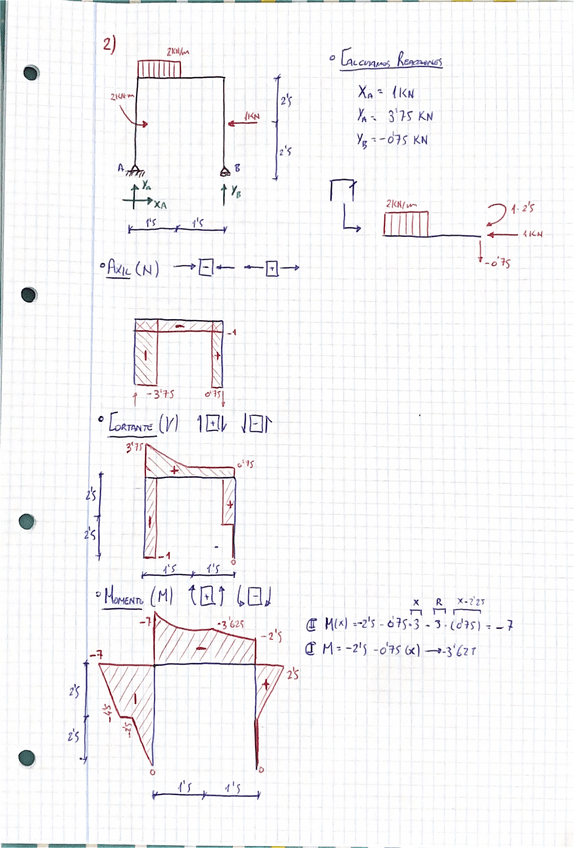 2)
2KN/m
2KN·m
1KN
2'5
2'5
A
B
YA
XA
YB
1'5
1'5
° CALCULAMOS REACCIONES
XA = 1KN
YA = 3'75 KN
YB = -0'75 KN
2KN/m
1·2'5
1KN
-0'75
° AXIL (N) → - ← ← + →
-
-1
-
+
-3'75
0'75
° CORTANTE (V) ↑+↓ ↓-↑
3'75
0'75
+
2'5
2'5
-
+
-1
-
0
1'5
1'5
° MOMENTO (M) + -
-7
-3'625
-2'5
-
-7
2'5
-
+
2'5
2'5
-4'5
-2'5
0
0
1'5
1'5
X R X-2'25
M(x) = -2'5 - 0'75·3 - 3·(0'75) = -7
M = -2'5 - 0'75(x) → -3'625